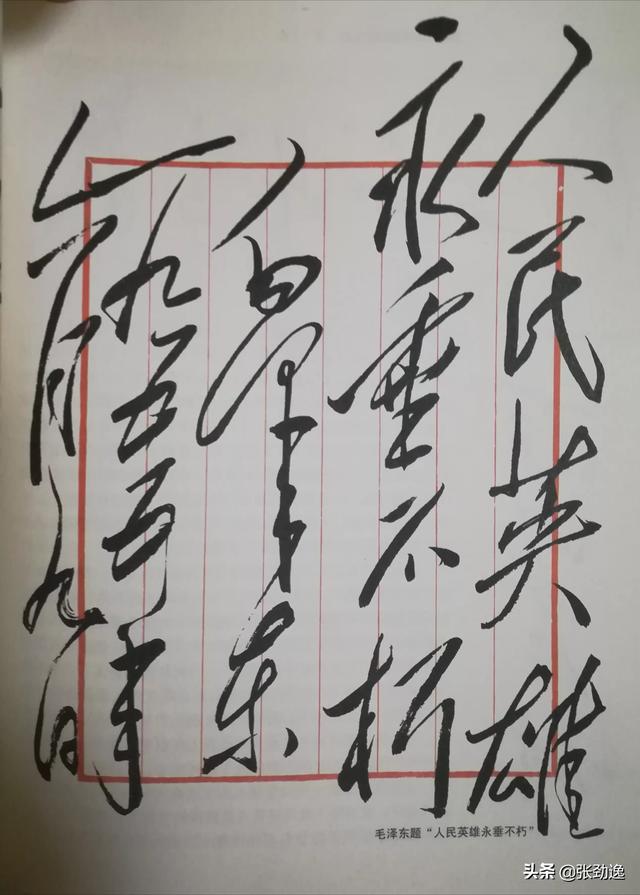 人民英雄
永垂不朽
毛泽东
一九五五年
六月九日
毛泽东题“人民英雄永垂不朽”
头条 @张劲逸